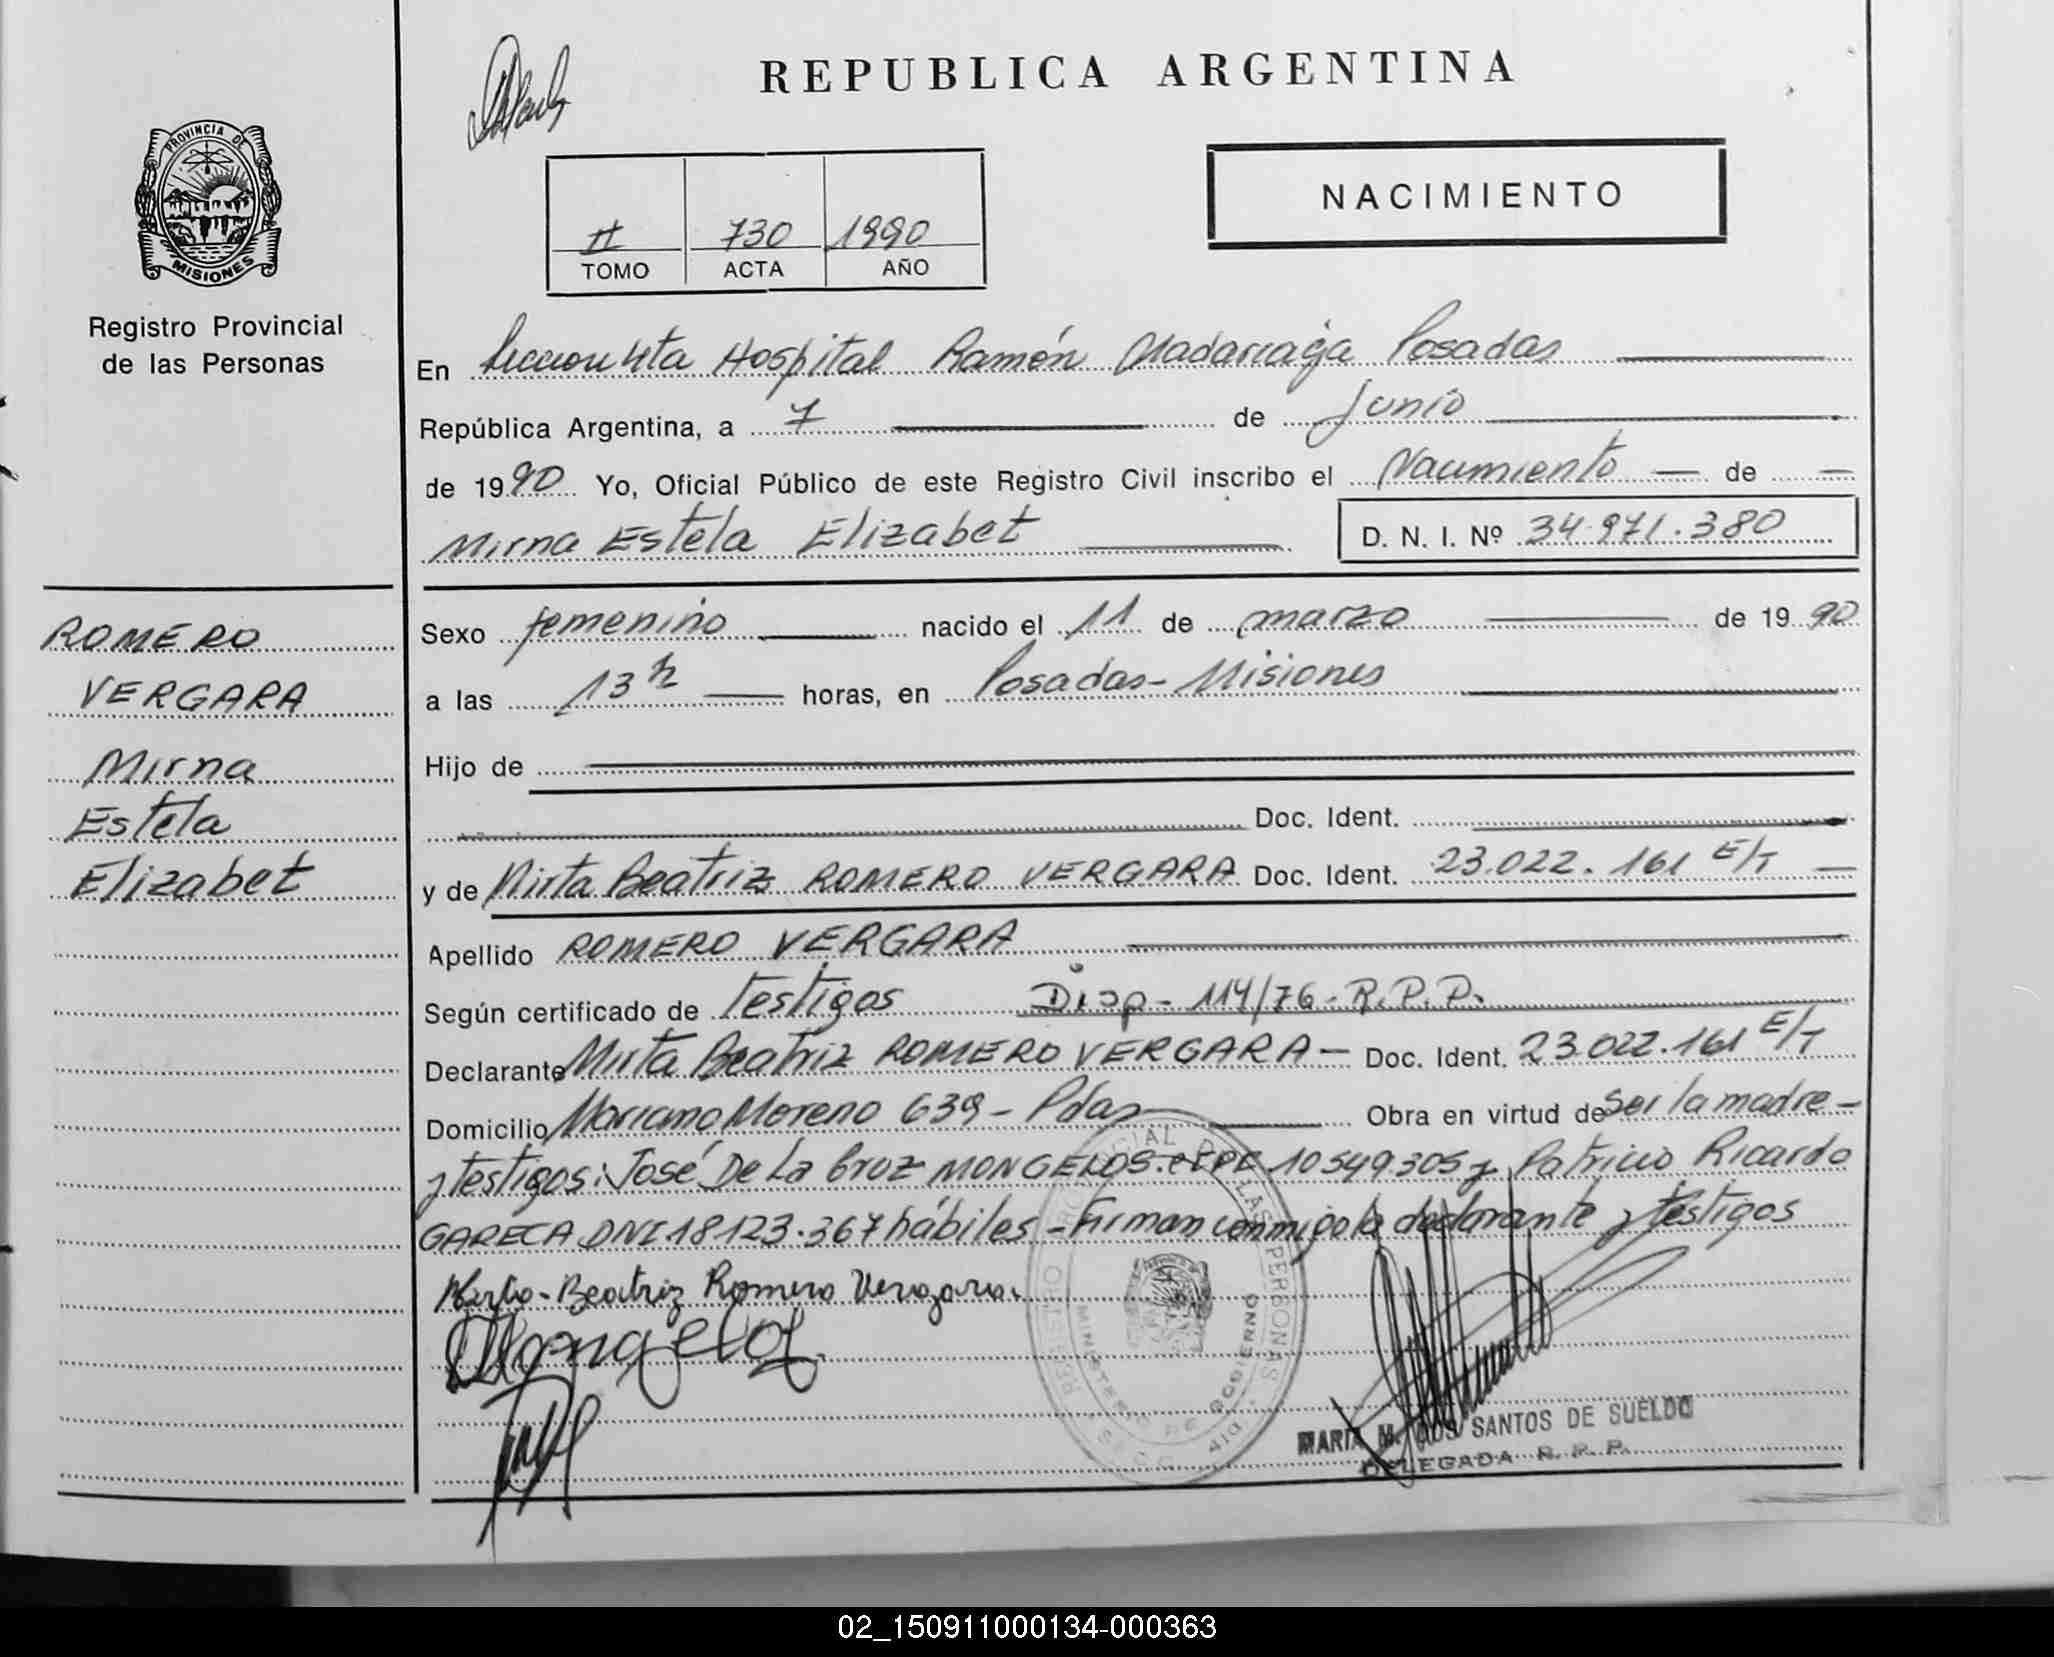 REPUBLICA ARGENTINA
PROVINCIA DE
MISIONES
Registro Provincial
de las Personas
NACIMIENTO
II 730 1990
TOMO ACTA AÑO
En Seccion 4ta Hospital Ramón Madariaga Posadas
República Argentina, a 7 de Junio
de 1990 Yo, Oficial Público de este Registro Civil inscribo el Nacimiento de
Mirna Estela Elizabet D. N. I. Nº 34.971.380
ROMERO
VERGARA
Mirna
Estela
Elizabet
Sexo femenino nacido el 11 de marzo de 1990
a las 13 h horas, en Posadas - Misiones
Hijo de
Doc. Ident.
y de Mirta Beatriz ROMERO VERGARA Doc. Ident. 23.022.161 E/T
Apellido ROMERO VERGARA
Según certificado de Testigos Disp - 114/76 - R.P.P.
Declarante Mirta Beatriz ROMERO VERGARA - Doc. Ident. 23.022.161 E/T
Domicilio Mariano Moreno 639 - Pdas Obra en virtud de Ser la madre -
y testigos: José De La Cruz MONGELOS 10549305 y Patricio Ricardo
GARECA DNI 18123.367 hábiles - Firman conmigo la declarante y testigos
Mirta - Beatriz Romero Vergara.
Mongeloz
REGISTRO PROVINCIAL DE LAS PERSONAS
MINISTERIO DE GOBIERNO
MARIA M. DOS SANTOS DE SUELDO
DELEGADA R. P. P.
02_150911000134-000363